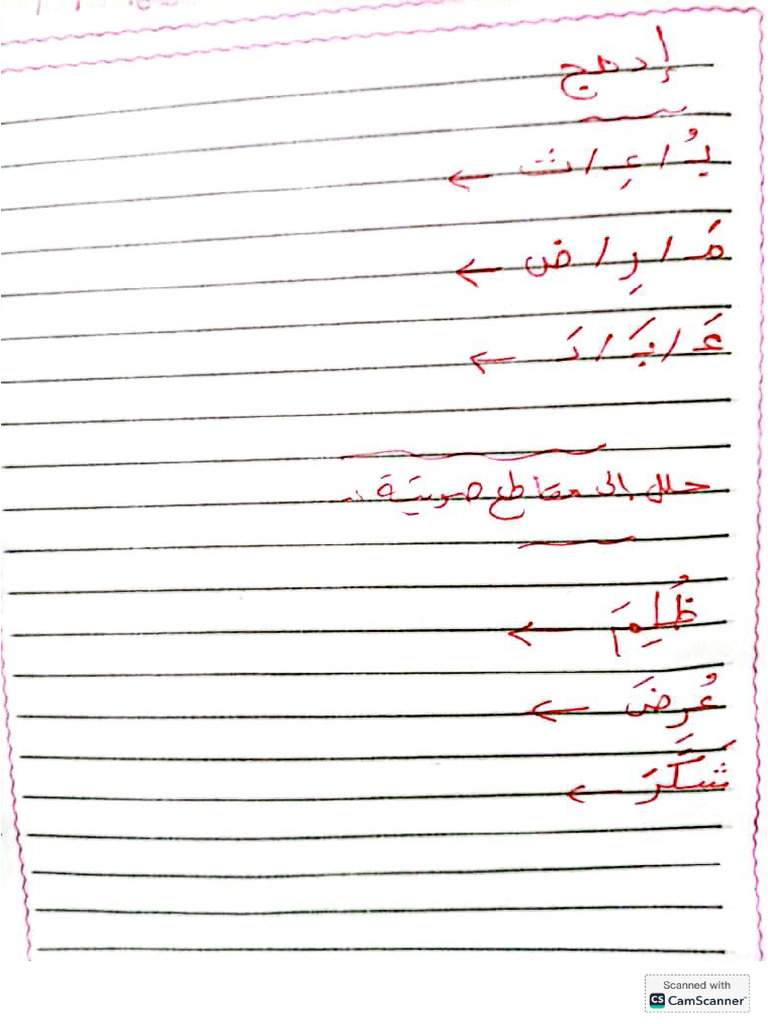 إدمج
بُ / عِ / ث ←
مَ / رِ / ض ←
عَ / بَ / دَ ←
حلل إلى مقاطع صوتية :
ظُلِمَ ←
عُرِضَ ←
شَكَرَ ←
Scanned with
CS CamScanner